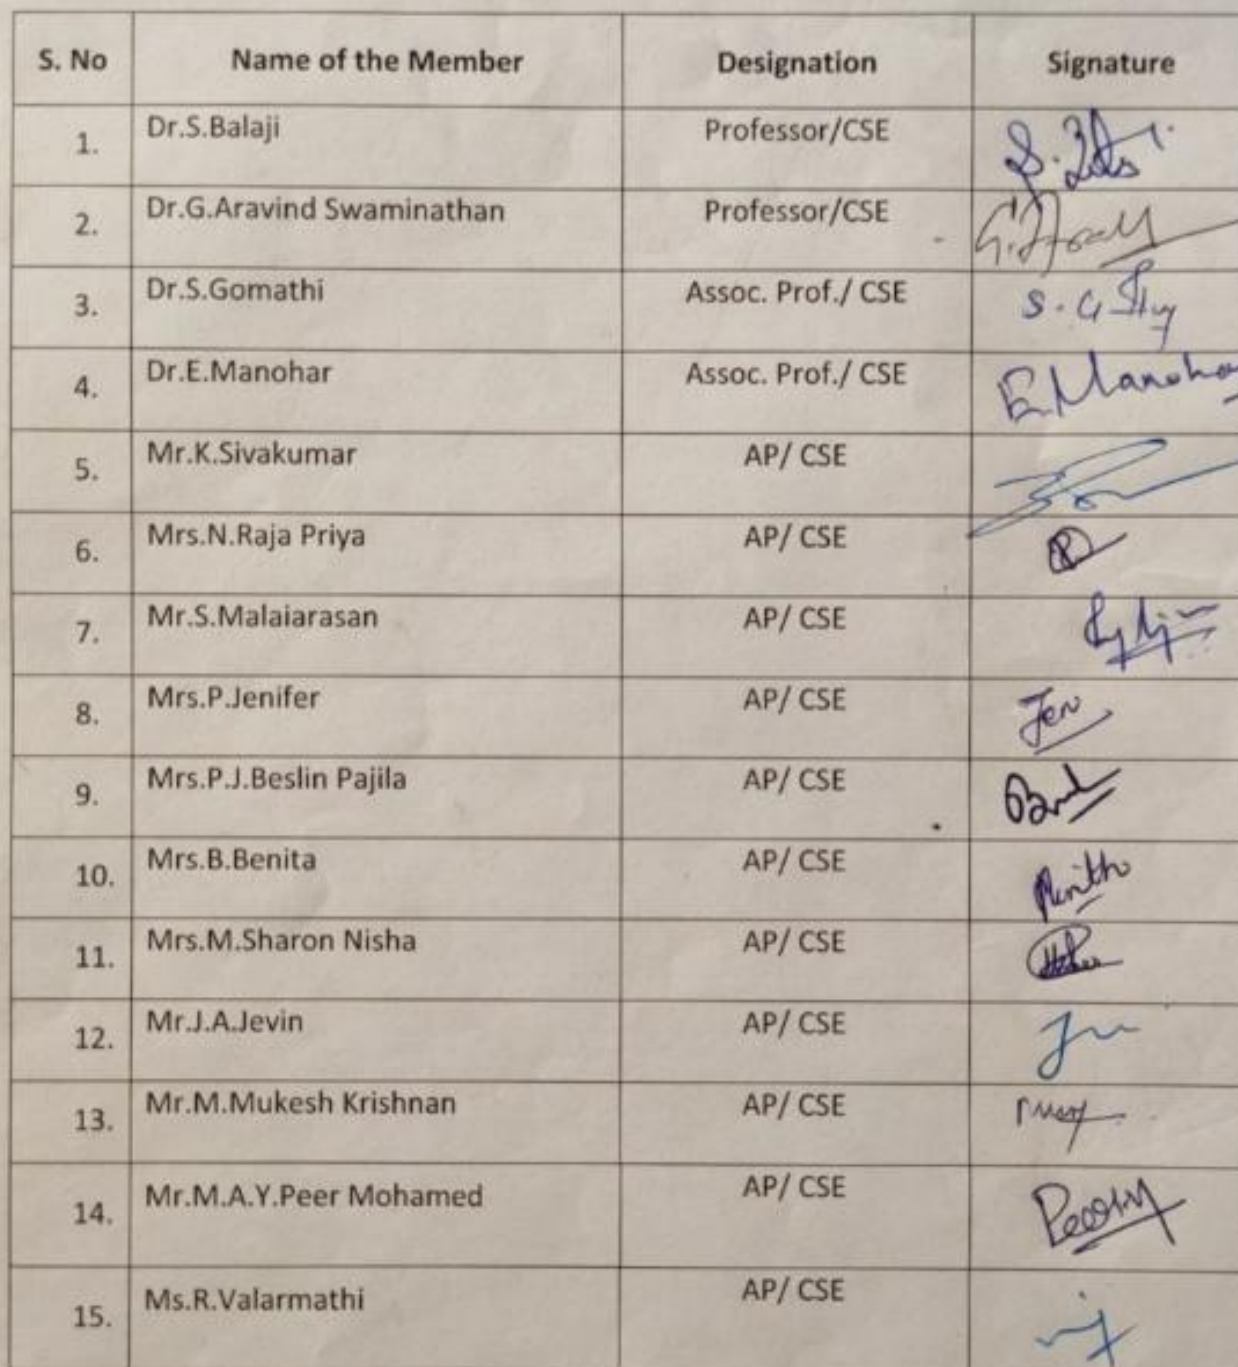 S. No Name of the Member Designation Signature
1. Dr.S.Balaji Professor/CSE
2. Dr.G.Aravind Swaminathan Professor/CSE
3. Dr.S.Gomathi Assoc. Prof./ CSE
4. Dr.E.Manohar Assoc. Prof./ CSE E.Manohar
5. Mr.K.Sivakumar AP/ CSE
6. Mrs.N.Raja Priya AP/ CSE
7. Mr.S.Malaiarasan AP/ CSE
8. Mrs.P.Jenifer AP/ CSE Jen
9. Mrs.P.J.Beslin Pajila AP/ CSE
10. Mrs.B.Benita AP/ CSE
11. Mrs.M.Sharon Nisha AP/ CSE
12. Mr.J.A.Jevin AP/ CSE
13. Mr.M.Mukesh Krishnan AP/ CSE
14. Mr.M.A.Y.Peer Mohamed AP/ CSE
15. Ms.R.Valarmathi AP/ CSE